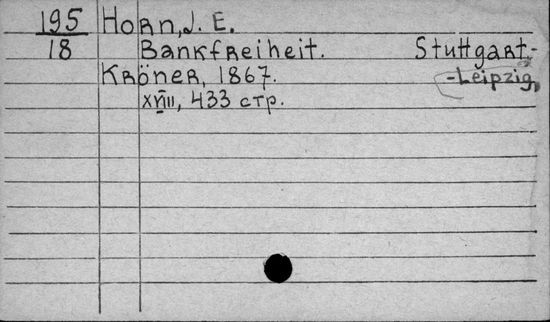 195 Horn, J. E.
18 Bankfreiheit. Stuttgart-
Kröner, 1867. -Leipzig,
XVIII, 433 стр.